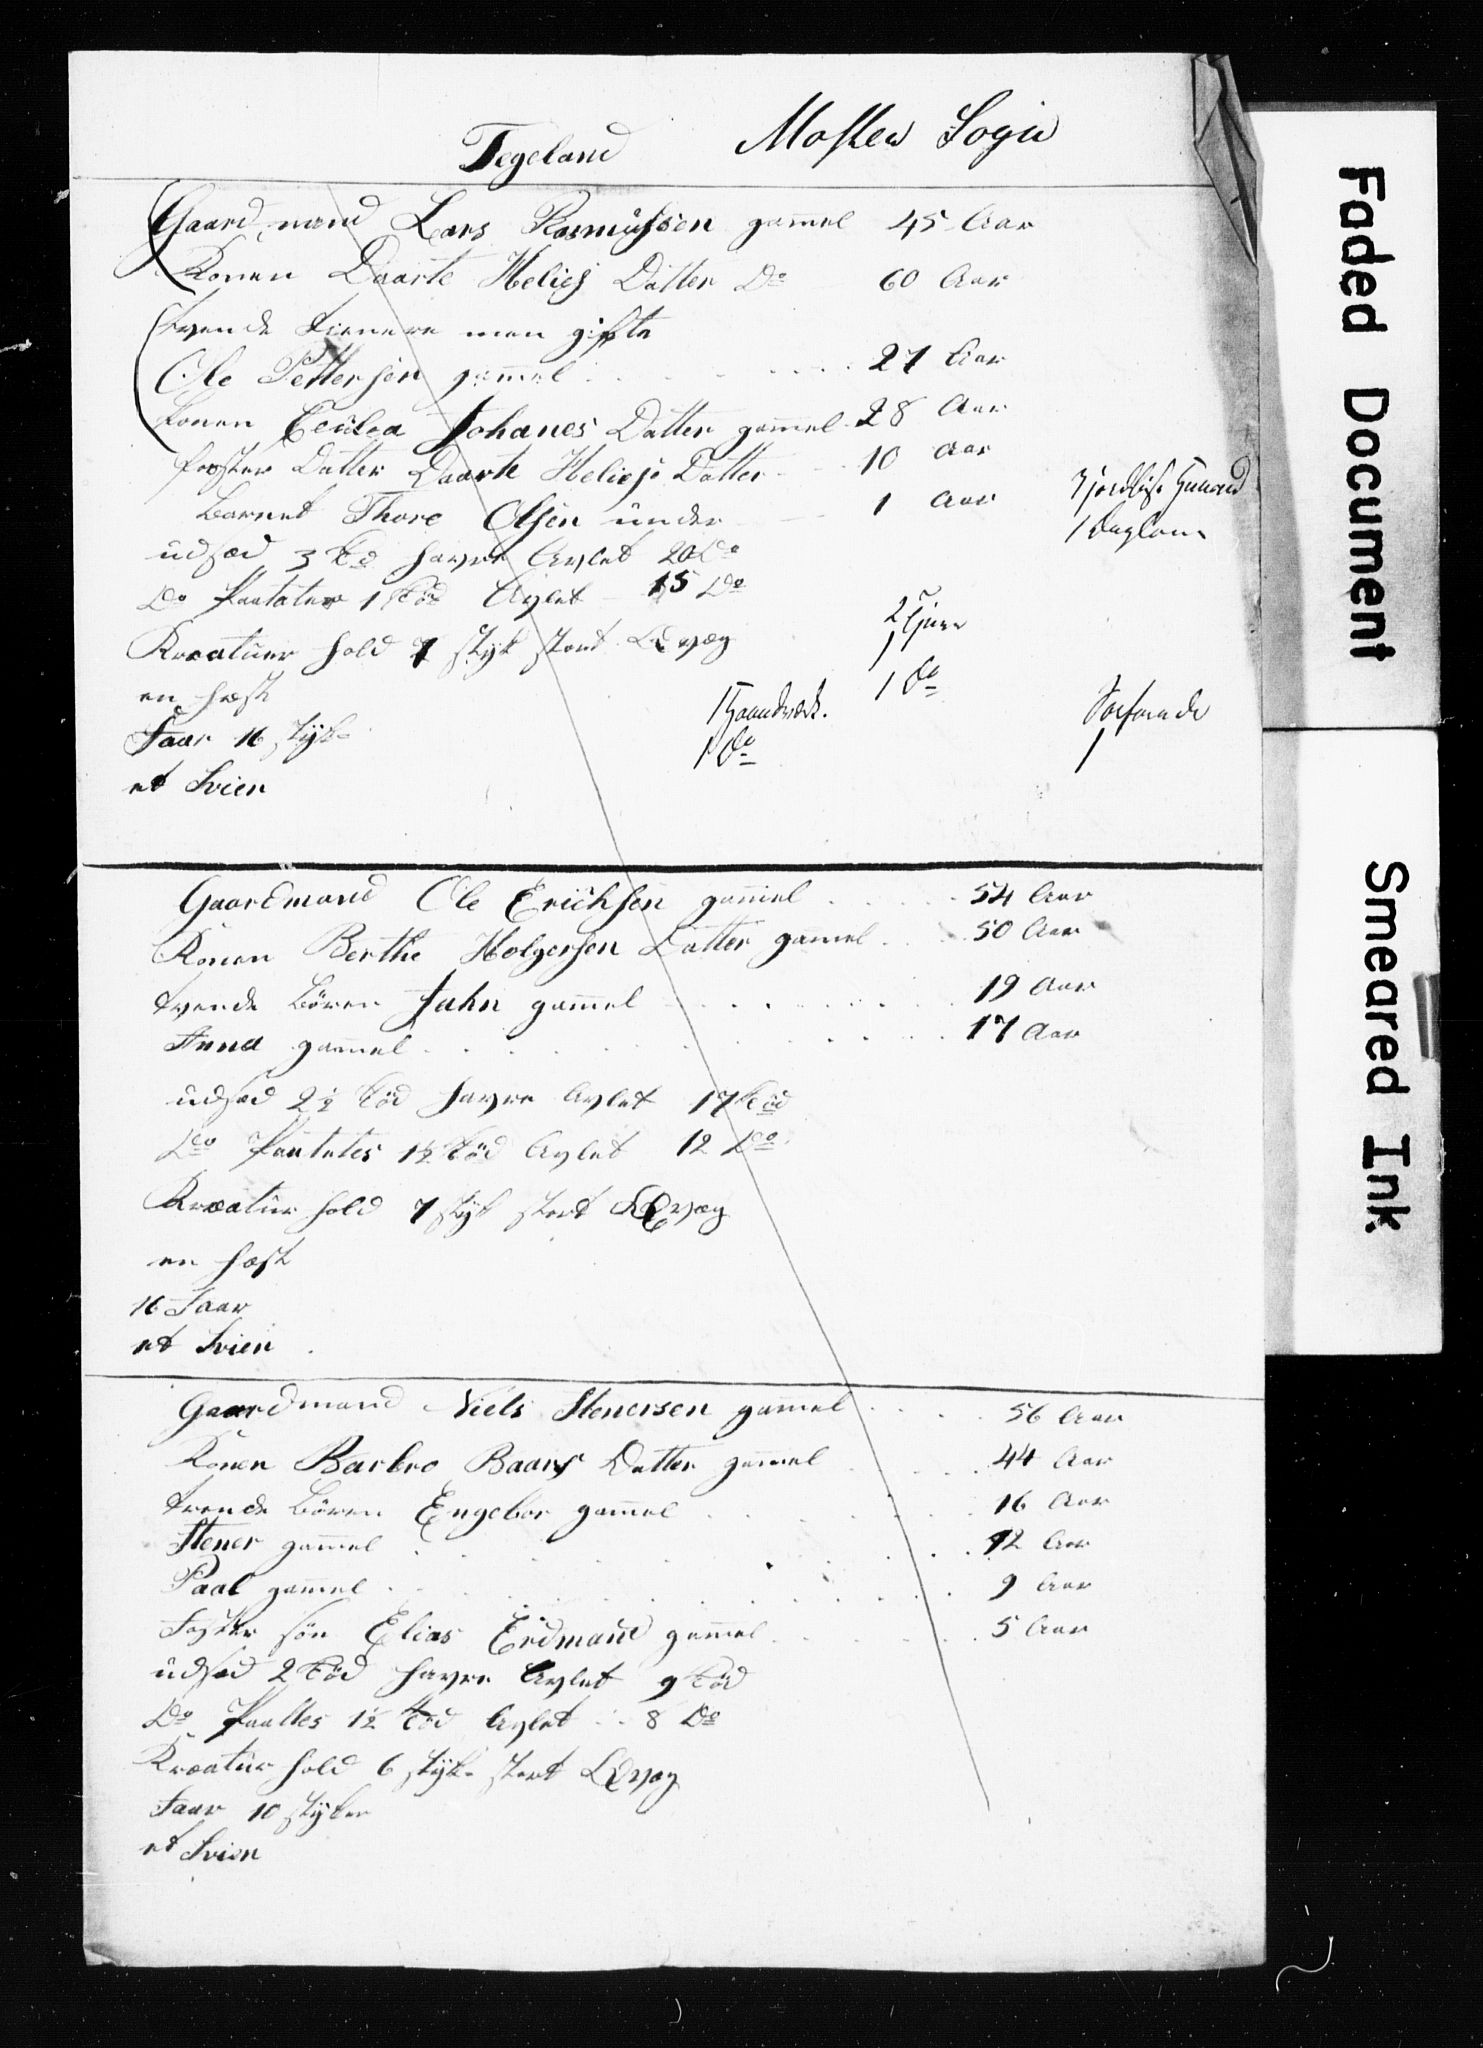 Tegeland Mosken Sogn
Gaardmand Lars Rasmussen gam̄el 45 Aar
Konen Daarte Helies Datter Do 60 Aar
tvende tienere men gifte
Ole Pettersen gam̄el 27 Aar
konen Cecilea Johanes Datter gam̄el 28 Aar
foster Datter Daarte Helies Datter 10 Aar
Barnet Thore Olsen under 1 Aar
3 jordbrugende
1 Dagløn
udsæd 3 td havre Avlet 20 Do
Do Paatates 1 tød Avlet 15 Do
Kreatuer hold 7 styk stort Qvæg
2 Tjene
1
en hæst
1 Do
Faar 16 styk
1 Haandværk.
1 Do
1
et Svien
Gaardmand Ole Erichsen gam̄el 54 Aar
Konen Berthe Holgersen Datter gam̄el 50 Aar
tvende Børen Jahn gam̄el 19 Aar
Anna gam̄el 17 Aar
udsæd 2½ tød havre Avlet 17 tød
Do Paatates 1½ tød Avlet 12 Do
Kreatur hold 7 styk stort Qvæg
en hæst
16 Faar
et Svien
Gaardmand Niels Stenersen gam̄el 56 Aar
Konen Barbro Baars Datter gam̄el 44 Aar
trende Børen Engebor gam̄el 16 Aar
Stener gam̄el 12 Aar
Paal gam̄el 9 Aar
Foster søn Elias Erdmand gam̄el 5 Aar
udsæd 2 tød havre Avlet 9 tød
Do Paattes 1½ tød Avlet 8 Do
Kreatur hold 6 styk stort Qvæg
Faar 10 styker
et Svien
Faded Document
Smeared Ink